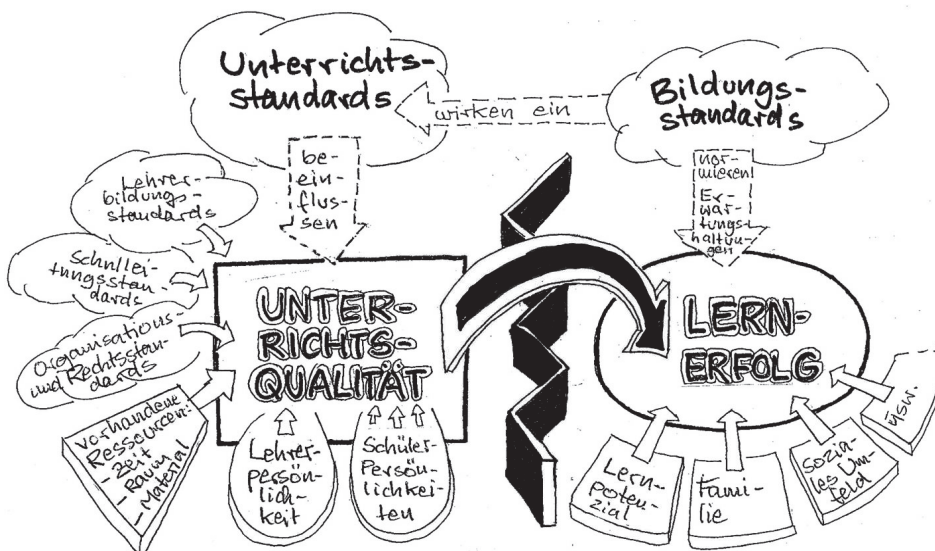 Unterrichts-
standards
wirken ein
Bildungs-
standards
be-
ein-
flus-
sen
nor-
mieren
Er-
war-
tungs-
haltun-
gen
Lehrer-
bildungs-
standards
Schullei-
tungsstan-
dards
Organisations-
und Rechtsstan-
dards
vorhandene
Ressourcen:
- Zeit
- Raum
- Material
UNTER-
RICHTS-
QUALITÄT
Lehrer-
persön-
lich-
keit
Schüler-
Persön-
lichkei-
ten
LERN-
ERFOLG
Lern-
poten-
zial
Fami-
lie
sozia-
les Um-
feld
usw.